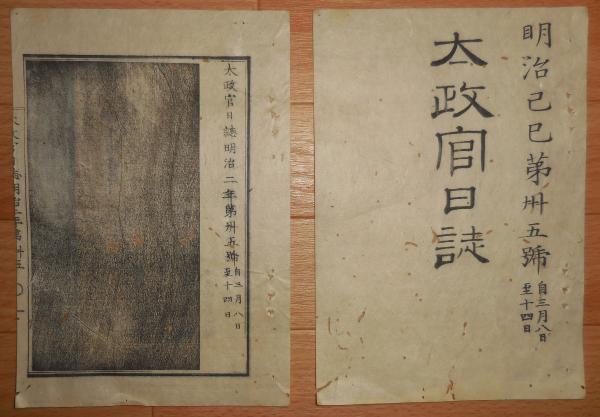 明治己巳苐卅五號
自三月八日
至十四日
太政官日誌
太政官日誌明治二年第卅五號
自三月八日
至十四日